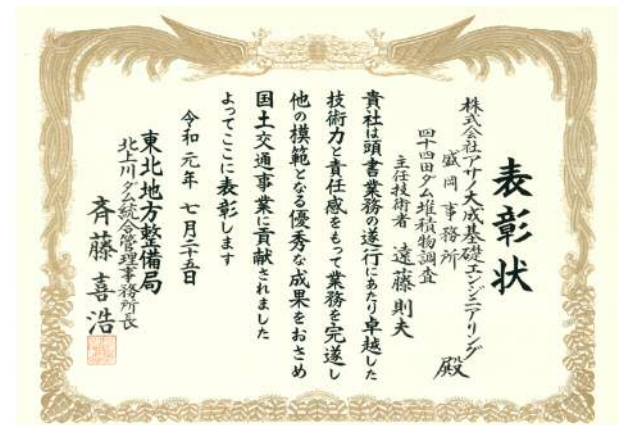 表彰状
株式会社アサノ大成基礎エンジニアリング
盛岡事務所 殿
四十四田ダム堆積物調査
主任技術者 遠藤則夫
貴社は頭書業務の遂行にあたり卓越した
技術力と責任感をもって業務を完遂し
他の模範となる優秀な成果をおさめ
国土交通事業に貢献されました
よってここに表彰します
令和元年 七月二十五日
東北地方整備局
北上川ダム統合管理事務所長
斉藤喜浩